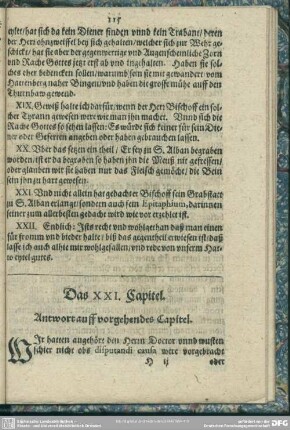 115
eylet/ hat sich da kein Diener finden vnnd kein Trabant/ deren
der Herr ohngezweiffel bey sich gehabt/ welcher sich zur Wehr ge-
schickt/ hat sie aber der gegenwertige vnd Augenscheinliche Zorn
vnd Rache Gottes jetzt erst ab vnd ingehalten. Haben sie sol-
ches eher bedencken sollen/ warumb sein sie mit gewandert vom
Hattenberg naher Bingen/ vnd haben die grosse mühe auff den
Thurn han gewend.
XIX. Gewiß halte ich darfür/ wenn der Herr Bischoff ein sol-
cher Tyrann gewesen were wie man jhn machet. Vnnd sich die
Rache Gottes so sehen lassen: Es würde sich keiner für sein Die-
ner oder Gefertin angeben oder haben gebrauchen lassen.
XX. Vber das sagen ein theil/ Er sey zu S. Alban begraben
worden/ ist er da begraben so haben jhn die Meuß nit gefressen/
oder glauben wir sie haben nur das Fleisch gemöcht/ die Bein
sein jhn zu hart gewesen.
XXI. Vnd nicht allein hat gedachter Bischoff sein Grabstatt
zu S. Alban erlangt/ sondern auch sein Epitaphium, darinnen
seiner zum allerbesten gedacht wird wie vor erzehlet ist.
XXII. Endlich: Ists recht vnd wohlgethan daß man einen
für fromm vnd bieder halte/ biß das gegentheil erwiesen ist/ daß
lasse ich auch alhie mir wohlgefallen/ vnd rede von vnserm Hat-
to eytel gutes.
Das XXI. Capitel.
Antwort auff vorgehendes Capitel.
WIr hatten angehört den Herrn Doctor vnnd wusten
schier nicht obs disputandi causa were vorgebracht
H ij
oder